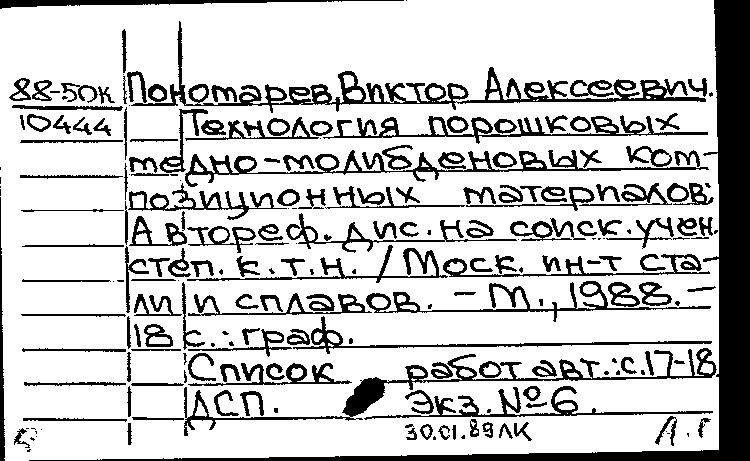 88-50к Пономарев, Виктор Алексеевич.
10444 Технология порошковых
медно-молибденовых ком-
позиционных материалов:
Автореф. дис. на соиск. учен.
степ. к.т.н. / Моск. ин-т ста-
ли и сплавов. – М., 1988. –
18 с.: граф.
Список работ авт.: с. 17-18
ДСП. Экз. № 6.
30.01.89 ЛК Л.Г